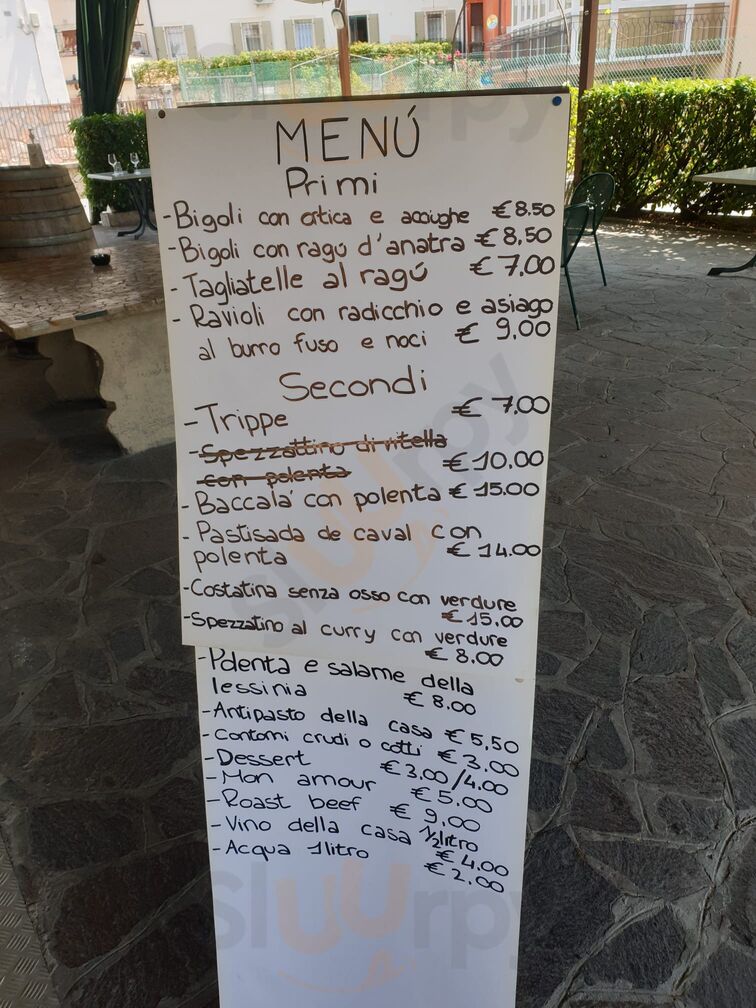 MENÚ
Primi
-Bigoli con ortica e acciughe €8.50
-Bigoli con ragú d'anatra €8,50
-Tagliatelle al ragú €7.00
-Ravioli con radicchio e asiago
al burro fuso e noci € 9,00
Secondi
-Trippe € 7.00
-Spezzattino di vitella
con polenta €10.00
-Baccala' con polenta €15.00
-Pastisada de caval con
polenta €14.00
-Costatina senza osso con verdure
€15.00
-Spezzatino al curry con verdure
€8.00
-Polenta e salame della
lessinia €8.00
-Antipasto della casa €5,50
-Contorni crudi o cotti €3.00
-Dessert €3.00/4.00
-Mon amour €5.00
-Roast beef €9.00
-Vino della casa 1/2litro
€4.00
-Acqua 1litro €2.00
sluurpy
sluurpy
sluurpy